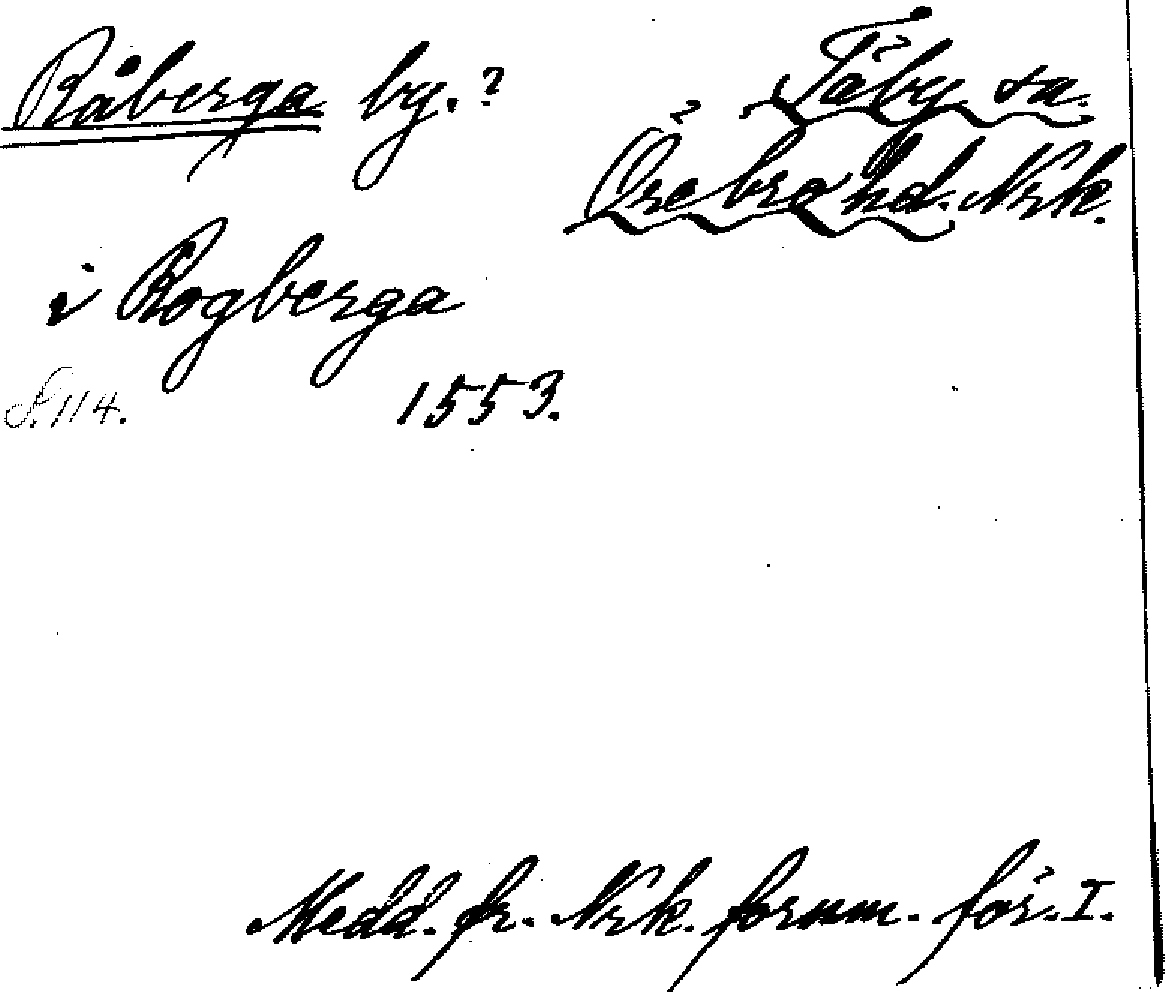 Råberga by.?
Täby sn.
Örebro hd. Nrk.
i Rogberga
S. 114. 1553.
Medd. fr. Nrk. fornm. för. I.